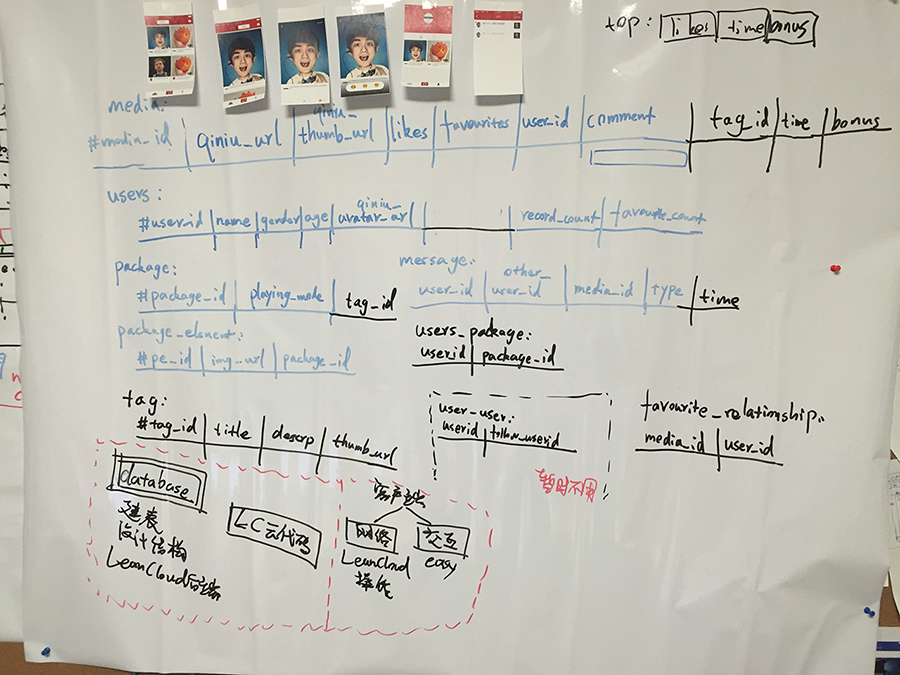 top: likes time bonus
media:
#media_id qiniu_url qiniu_thumb_url likes favourites user_id comment tag_id time bonus
users:
#user_id name gender age qiniu_avatar_url record_count favourite_count
package:
#package_id playing_mode tag_id
message:
user_id other_user_id media_id type time
package_element:
#pe_id img_url package_id
users_package:
userid package_id
tag:
#tag_id title descrp thumb_url
user-user:
userid follow_userid
暂时不用
favourite_relationship:
media_id user_id
database
建表
设计结构
LeanCloud后端
LC云代码
客户端
网络
LeanCloud
交互
easy